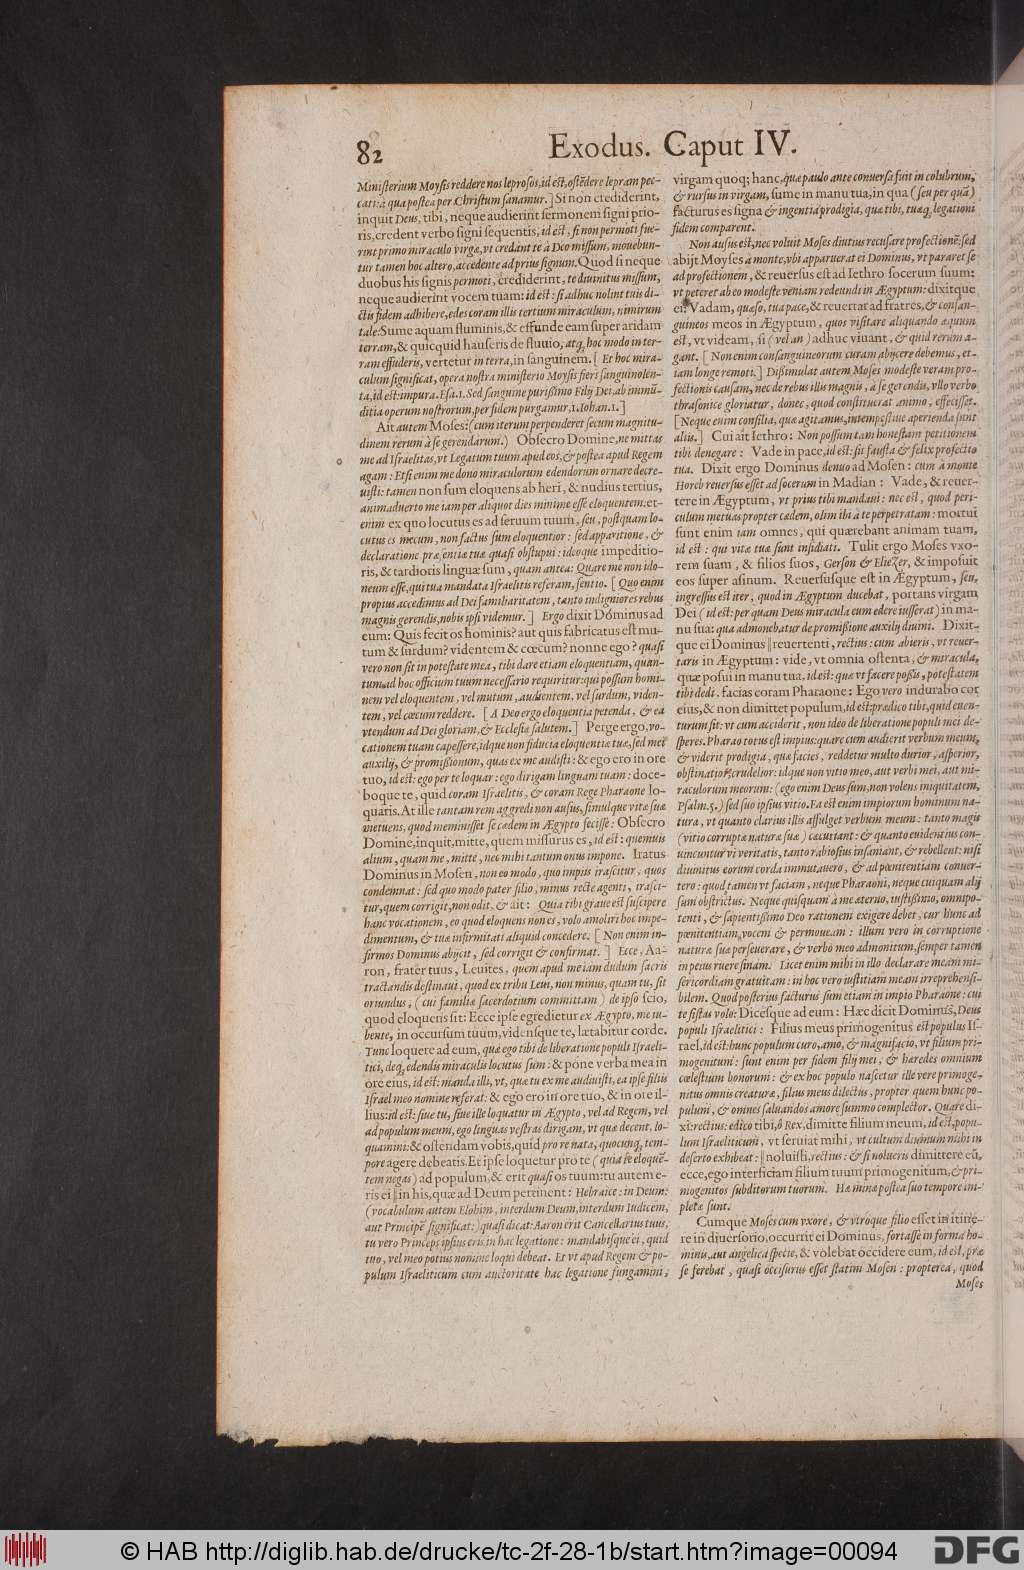 82
Exodus. Caput IV.
Ministerium Moysis reddere nos leprosos, id est, ostẽdere lepram pec-
cati: à qua postea per Christum sanamur.] Si non crediderint,
inquit Deus, tibi, neque audierint sermonem signi prio-
ris, credent verbo signi sequentis, id est, si non permoti fue-
rint primo miraculo virgæ, vt credant te à Deo missum, mouebun-
tur tamen hoc altero, accedente ad prius signum. Quod si neque
duobus his signis permoti, crediderint, te diuinitus missum,
neque audierint vocem tuam: id est: si adhuc nolint tuis di-
ctis fidem adhibere, edes coram illis tertium miraculum, nimirum
tale: Sume aquam fluminis, & effunde eam super aridam
terram, & quicquid hauseris de fluuio, atq; hoc modo in ter-
ram effuderis, vertetur in terra, in sanguinem. [ Et hoc mira-
culum significat, opera nostra ministerio Moysis fieri sanguinolen-
ta, id est: impura. Esa. 1. Sed sanguine purißimo Filij Dei ab immũ-
ditia operum nostrorum, per fidem purgamur, 1. Iohan. 1. ]
Ait autem Moses: (cum iterum perpenderet secum magnitu-
dinem rerum à se gerendarum.) Obsecro Domine, ne mittas
me ad Israelitas, vt Legatum tuum apud eos, & postea apud Regem
agam: Etsi enim me dono miraculorum edendorum ornare decre-
uisti: tamen non sum eloquens ab heri, & nudius tertius,
animaduerto me iam per aliquot dies minime esse eloquentem: et-
enim ex quo locutus es ad seruum tuum, seu, postquam lo-
cutus es mecum, non factus sum eloquentior: sed apparitione, &
declaratione præsentiæ tuæ quasi obstupui: ideoque impeditio-
ris, & tardioris linguæ sum, quam antea: Quare me non ido-
neum esse, qui tua mandata Israelitis referam, sentio. [ Quo enim
propius accedimus ad Dei familiaritatem, tanto indigniores rebus
magnis gerendis, nobis ipsi videmur. ] Ergo dixit Dominus ad
eum: Quis fecit os hominis? aut quis fabricatus est mu-
tum & surdum? videntem & cœcum? nonne ego? quasi
vero non sit in potestate mea, tibi dare etiam eloquentiam, quan-
tum ad hoc officium tuum necessario requiritur: qui possum homi-
nem vel eloquentem, vel mutum, audientem, vel surdum, viden-
tem, vel cœcum reddere. [ A Deo ergo eloquentia petenda, & ea
vtendum ad Dei gloriam, & Ecclesiæ salutem. ] Perge ergo, vo-
cationem tuam capessere, idque non fiducia eloquentiæ tuæ, sed mei
auxilij, & promißionum, quas ex me audisti: & ego ero in ore
tuo, id est: ego per te loquar: ego dirigam linguam tuam: doce-
boque te, quid coram Israelitis, & coram Rege Pharaone lo-
quaris. At ille tantam rem aggredi non ausus, simulque vitæ suæ
metuens, quod meminisset se cædem in Ægypto fecisse: Obsecro
Domine, inquit, mitte, quem missurus es, id est: quemuis
alium, quam me, mitte, nec mihi tantum onus impone. Iratus
Dominus in Mosen, non eo modo, quo impiis irascitur, quos
condemnat: sed quo modo pater filio, minus recte agenti, irasci-
tur, quem corrigit, non odit, & ait: Quia tibi graue est suscipere
hanc vocationem, eo quod eloquens non es, volo amoliri hoc impe-
dimentum, & tuæ infirmitati aliquid concedere. [ Non enim in-
firmos Dominus abijcit, sed corrigit & confirmat. ] Ecce, Aa-
ron, frater tuus, Leuites, quem apud me iam dudum sacris
tractandis destinaui, quod ex tribu Leui, non minus, quam tu, sit
oriundus, ( cui familiæ sacerdotium committam ) de ipso scio,
quod eloquens sit: Ecce ipse egredietur ex Ægypto, me iu-
bente, in occursum tuum, vidensque te, lætabitur corde.
Tunc loquere ad eum, quæ ego tibi de liberatione populi Israeli-
tici, deq; edendis miraculis locutus sum: & pone verba mea in
ore eius, id est: manda illi, vt, quæ tu ex me audiuisti, ea ipse filiis
Israel meo nomine referat: & ego ero in ore tuo, & in ore il-
lius: id est: siue tu, siue ille loquatur in Ægypto, vel ad Regem, vel
ad populum meum, ego linguas vestras dirigam, vt quæ decent, lo-
quamini: & ostendam vobis, quid pro re nata, quocunq; tem-
pore agere debeatis. Et ipse loquetur pro te ( quia te eloquẽ-
tem negas ) ad populum, & erit quasi os tuum: tu autem e-
ris ei || in his, quæ ad Deum pertinent: Hebraice: in Deum:
(vocabulum autem Elohim, interdum Deum, interdum Iudicem,
aut Principẽ significat:) quasi dicat: Aaron erit Cancellarius tuus,
tu vero Princeps ipsius eris in hac legatione: mandabisque ei, quid
tuo, vel meo potius nomine loqui debeat. Et vt apud Regem & po-
pulum Israeliticum cum auctoritate hac legatione fungamini,
virgam quoq; hanc, quæ paulo ante conuersa fuit in colubrum,
& rursus in virgam, sume in manu tua, in qua ( seu per quã)
facturus es signa & ingentia prodigia, quæ tibi, tuæq; legationi
fidem comparent.
Non ausus est, nec voluit Moses diutius recusare profectionẽ: sed
abijt Moyses à monte, vbi apparuerat ei Dominus, vt pararet se
ad profectionem, & reuersus est ad Iethro socerum suum:
vt peteret ab eo modeste veniam redeundi in Ægyptum: dixitque
ei: Vadam, quæso, tua pace, & reuertar ad fratres, & consan-
guineos meos in Ægyptum, quos visitare aliquando æquum
est, vt videam, si ( vel an ) adhuc viuant, & quid rerum a-
gant. [ Non enim consanguineorum curam abijcere debemus, et-
iam longe remoti. ] Dißimulat autem Moses modeste veram pro-
fectionis causam, nec de rebus illis magnis, à se gerendis, vllo verbo
thrasonice gloriatur, donec, quod constituerat animo, effecisset.
[ Neque enim consilia, quæ agitamus, intempestiue aperienda sunt
aliis. ] Cui ait Iethro: Non possum tam honestam petitionem
tibi denegare: Vade in pace, id est: sit fausta & felix profectio
tua. Dixit ergo Dominus denuo ad Mosen: cum à monte
Horeb reuersus esset ad socerum in Madian: Vade, & reuer-
tere in Ægyptum, vt prius tibi mandani: nec est, quod peri-
culum metuas propter cædem, olim ibi à te perpetratam: mortui
sunt enim iam omnes, qui quærebant animam tuam,
id est: qui vitæ tuæ sunt insidiati. Tulit ergo Moses vxo-
rem suam, & filios suos, Gerson & Eliezer, & imposuit
eos super asinum. Reuersusque est in Ægyptum, seu,
ingressus est iter, quod in Ægyptum ducebat, portans virgam
Dei ( id est: per quam Deus miracula eum edere iusserat) in ma-
nu sua: qua admonebatur de promißione auxilij diuini. Dixit-
que ei Dominus || reuertenti, rectius: cum abieris, vt reuer-
taris in Ægyptum: vide, vt omnia ostenta, & miracula,
quæ posui in manu tua, id est: quæ vt facere poßis, potestatem
tibi dedi. facias coram Pharaone: Ego vero indurabo cor
eius, & non dimittet populum, id est: prædico tibi, quid euen-
turum sit: vt cum acciderit, non ideo de liberatione populi mei de-
speres. Pharao totus est impius: quare cum audierit verbum meum,
& viderit prodigia, quæ facies, reddetur multo durior, asperior,
obstinatior, crudelior: idque non vitio meo, aut verbi mei, aut mi-
raculorum meorum: (ego enim Deus sum, non volens iniquitatem,
Psalm. 5.) sed suo ipsius vitio. Ea est enim impiorum hominum na-
tura, vt quanto clarius illis affulget verbum meum: tanto magis
(vitio corruptæ naturæ suæ ) cæcutiant: & quanto euidentius con-
uincuntur vi veritatis, tanto rabiosius insaniant, & rebellent: nisi
diuinitus eorum corda immutauero, & ad pœnitentiam conuer-
tero: quod tamen vt faciam, neque Pharaoni, neque cuiquam alij
sum obstrictus. Neque quisquam à me æterno, iustißimo, omnipo-
tenti, & sapientißimo Deo rationem exigere debet, cur hunc ad
pœnitentiam, vocem & permoueam: illum vero in corruptione
naturæ suæ perseuerare, & verbo meo admonitum, semper tamen
in peius ruere sinam. Licet enim mihi in illo declarare meam mi-
sericordiam gratuitam: in hoc vero iustitiam meam irreprehensi-
bilem. Quod posterius facturus sum etiam in impio Pharaone: cui
te sistas volo: Dicesque ad eum: Hæc dicit Dominus, Deus
populi Israelitici: Filius meus primogenitus est populus Is-
rael, id est: hunc populum curo, amo, & magnifacio, vt filium pri-
mogenitum: sunt enim per fidem filij mei, & hæredes omnium
cœlestium bonorum: & ex hoc populo nascetur ille vere primoge-
nitus omnis creaturæ, filius meus dilectus, propter quem hunc po-
pulum, & omnes saluandos amore summo complector. Quare di-
xi: rectius: edico tibi, ô Rex, dimitte filium meum, id est, popu-
lum Israeliticum, vt seruiat mihi, vt cultum diuinum mihi in
deserto exhibeat: || noluisti, rectius: & si nolueris dimittere eũ,
ecce, ego interficiam filium tuum primogenitum, & pri-
mogenitos subditorum tuorum. Hæ minæ postea suo tempore im-
pletæ sunt.
Cumque Moses cum vxore, & vtroque filio esset in itine-
re in diuersorio, occurrit ei Dominus, fortasse in forma ho-
minis, aut angelica specie, & volebat occidere eum, id est, præ
se ferebat, quasi occisurus esset statim Mosen: propterea, quod
Moses
© HAB http://diglib.hab.de/drucke/tc-2f-28-1b/start.htm?image=00094
DFG